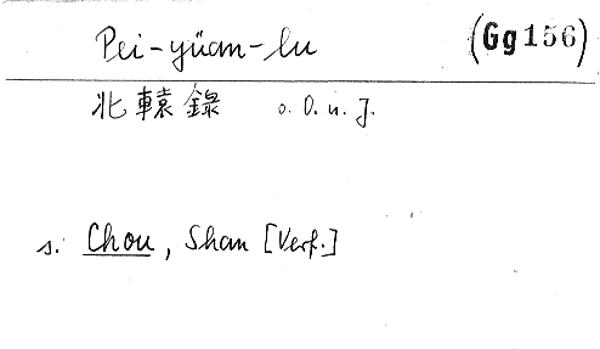 Pei-yüan-lu (Gg 156)
北轅錄 o. O. u. J.
s. Chou, Shan [Verf.]